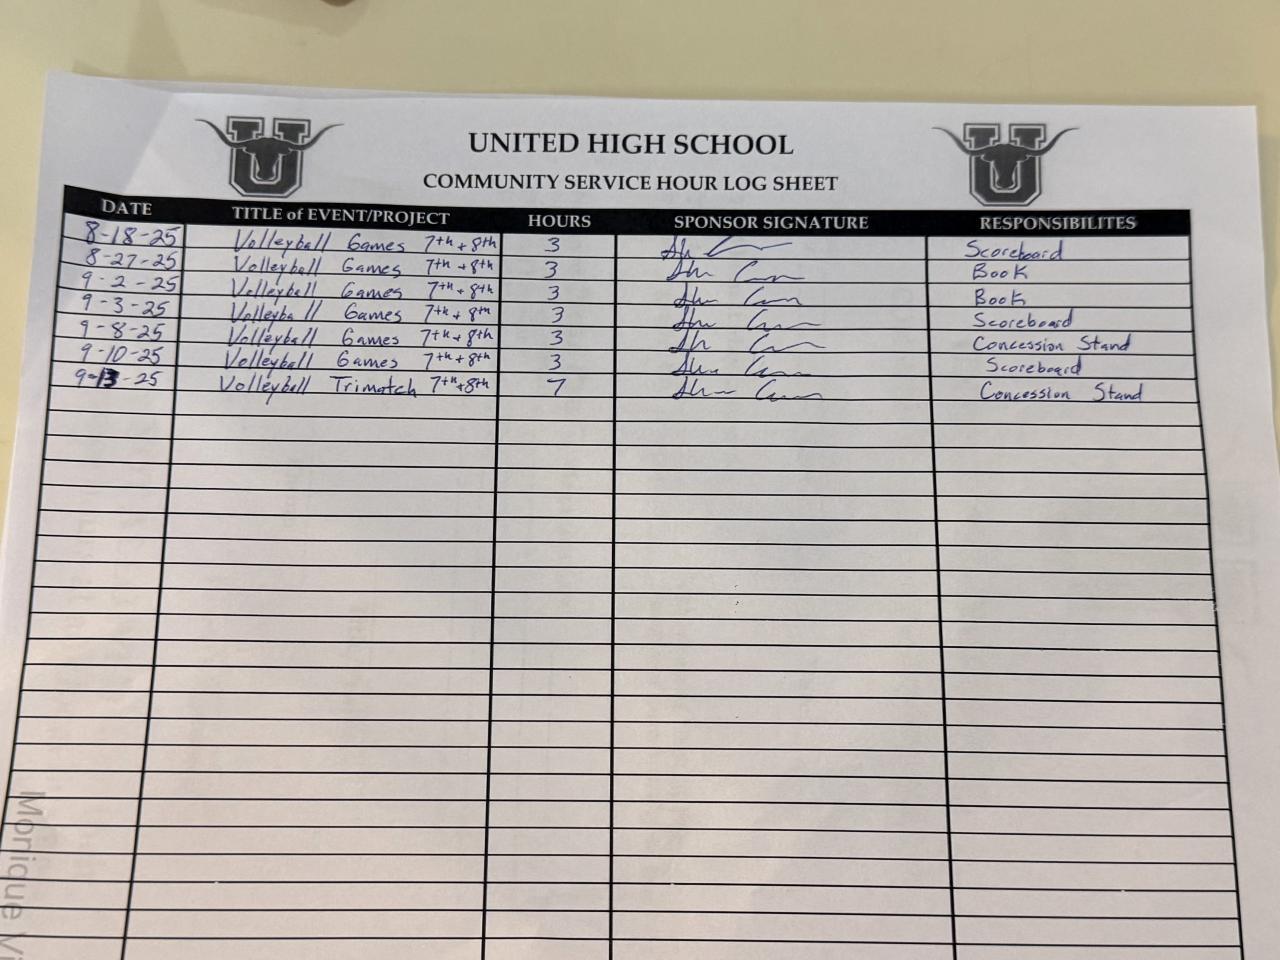 UNITED HIGH SCHOOL
COMMUNITY SERVICE HOUR LOG SHEET
DATE TITLE of EVENT/PROJECT HOURS SPONSOR SIGNATURE RESPONSIBILITES
8-18-25 Volleyball Games 7th + 8th 3 Scoreboard
8-27-25 Volleyball Games 7th + 8th 3 Book
9-2-25 Volleyball Games 7th + 8th 3 Book
9-3-25 Volleyball Games 7th + 8th 3 Scoreboard
9-8-25 Volleyball Games 7th + 8th 3 Concession Stand
9-10-25 Volleyball Games 7th + 8th 3 Scoreboard
9-13-25 Volleyball Trimatch 7th + 8th 7 Concession Stand
Monique